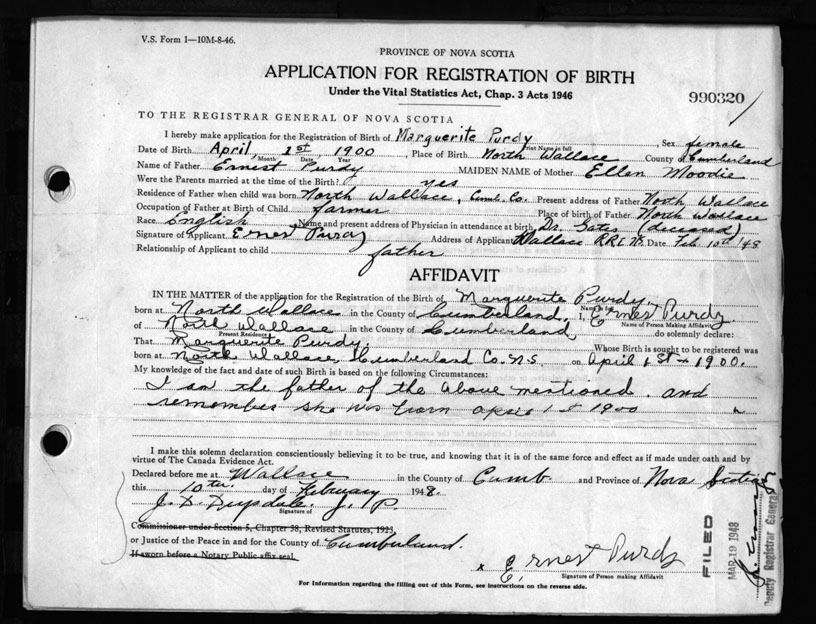 V.S. Form 1—10M-8-46.
PROVINCE OF NOVA SCOTIA
APPLICATION FOR REGISTRATION OF BIRTH
Under the Vital Statistics Act, Chap. 3 Acts 1946
990320
TO THE REGISTRAR GENERAL OF NOVA SCOTIA
I hereby make application for the Registration of Birth of Marguerite Purdy Sex female
Print Name in full
Date of Birth April, 1st, 1900, Place of Birth North Wallace County of Cumberland
Month Date Year
Name of Father Ernest Purdy MAIDEN NAME of Mother Ellen Moodie
Were the Parents married at the time of the Birth? yes
Residence of Father when child was born North Wallace, Cumb. Co. Present address of Father North Wallace
Occupation of Father at Birth of Child farmer Place of birth of Father North Wallace
Race English Name and present address of Physician in attendance at birth Dr. Gates (deceased)
Signature of Applicant Ernest Purdy Address of Applicant Wallace R.R. Date Feb 10th/48
Relationship of Applicant to child father
AFFIDAVIT
IN THE MATTER of the application for the Registration of the Birth of Marguerite Purdy
Name in full
born at North Wallace in the County of Cumberland. I, Ernest Purdy
Name of Person Making Affidavit
of North Wallace in the County of Cumberland do solemnly declare:
Present Residence
That Marguerite Purdy. Whose Birth is sought to be registered was
born at North Wallace, Cumberland Co. N.S. on April 1st 1900.
My knowledge of the fact and date of such Birth is based on the following Circumstances:
I am the father of the above mentioned and
remember she was born april 1st 1900
I make this solemn declaration conscientiously believing it to be true, and knowing that it is of the same force and effect as if made under oath and by
virtue of The Canada Evidence Act.
Declared before me at Wallace in the County of Cumb and Province of Nova Scotia
this 10th day of February 1948.
J. D. J.P.
Signature of
Commissioner under Section 5, Chapter 38, Revised Statutes, 1923
or Justice of the Peace in and for the County of Cumberland.
If sworn before a Notary Public affix seal.
x Ernest Purdy
E,
Signature of Person making Affidavit
For Information regarding the filling out of this Form, see instructions on the reverse side.
FILED
MAR 19 1948
Deputy Registrar General